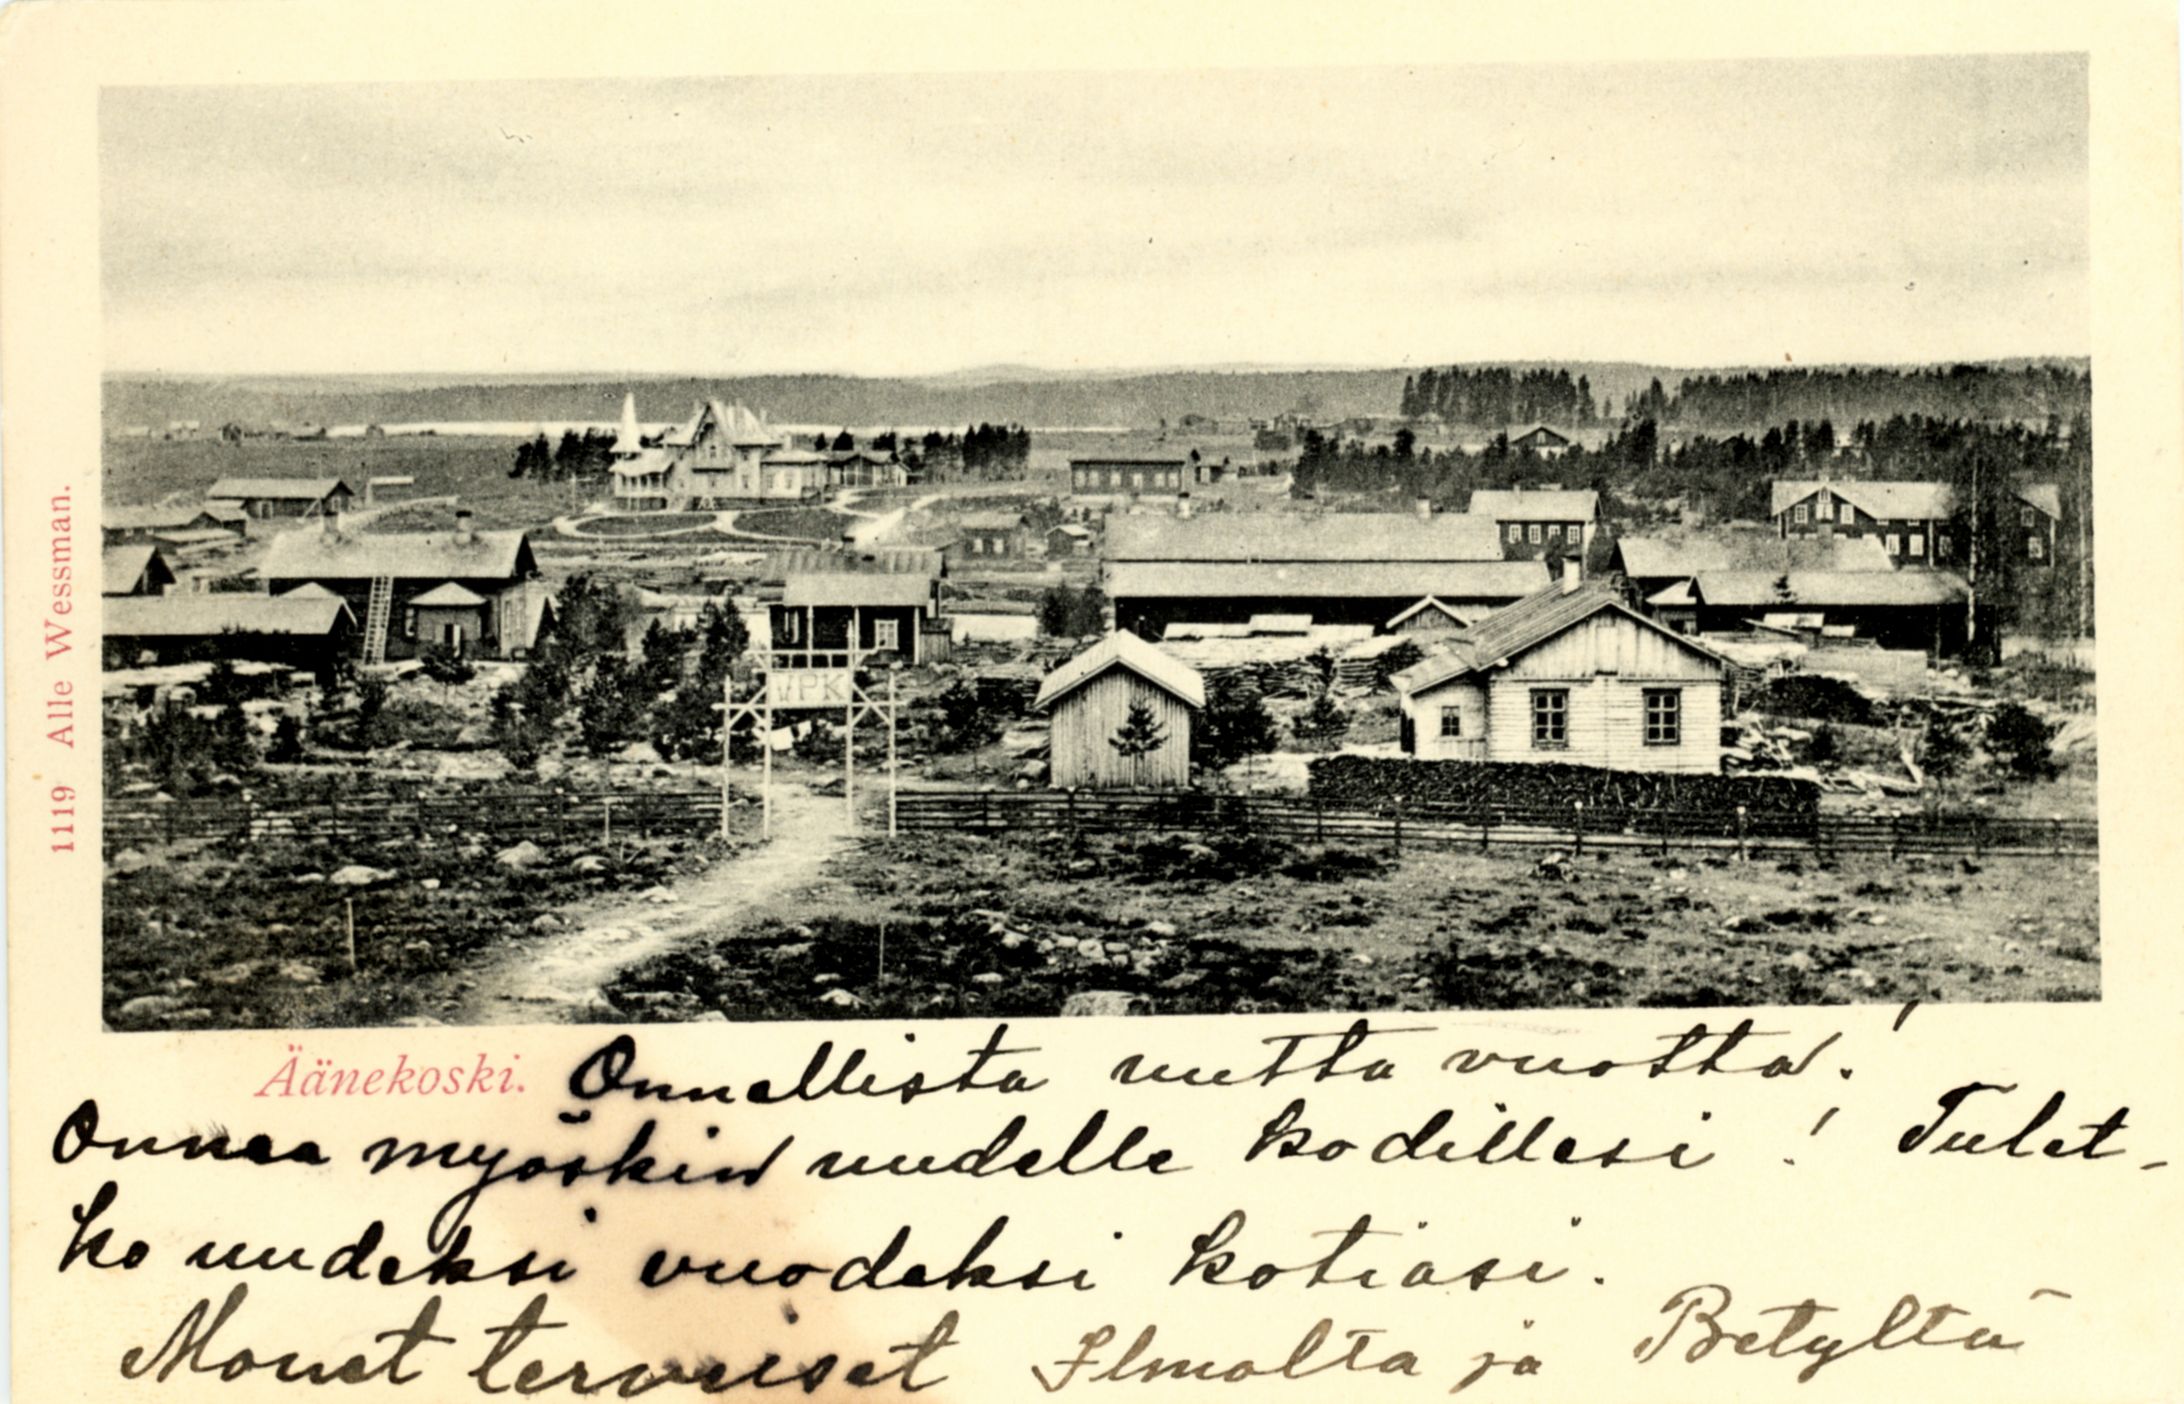 VPK
1119 Alle Wessman.
Äänekoski.
Onnellista uutta vuotta!
Onnea myöskin uudelle kodillesi! Tulet-
ko uudeksi vuodeksi kotiasi.
Monet terveiset Ilmolta ja Betyltä